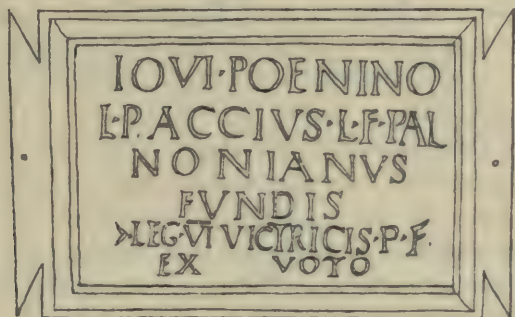 IOVI·POENINO
L·PACCIVS·L·F·PAL
NONIANVS
FVNDIS
>LEG·VI VICTRICIS·P·F·
EX VOTO